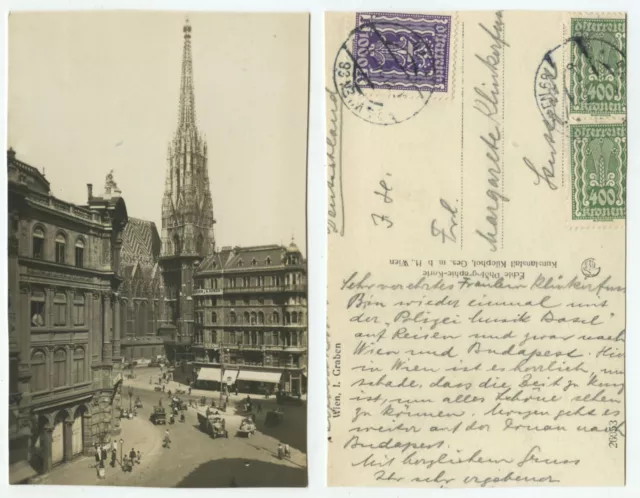 österreich
1000
österreich
400
Kronen
österreich
400
Kronen
Deutschland
F. H.
Frl.
Margarete Klinkerfuss
Echte Photographie-Karte
Kunstanstalt Kilophot, Ges. m. b. H., Wien
Wien, I. Graben
Sehr verehrtes Fräulein Klinkerfuss
Bin wieder einmal mit
der „Polizei Musik Basel"
auf Reisen und zwar nach
Wien und Budapest. Hier
in Wien ist es herrlich, nur
schade, dass die Zeit zu kurz
ist, um alles Schöne sehen
zu können. Morgen geht es
weiter auf der Donau nach
Budapest.
Mit herzlichem Gruss
Ihr sehr ergebener